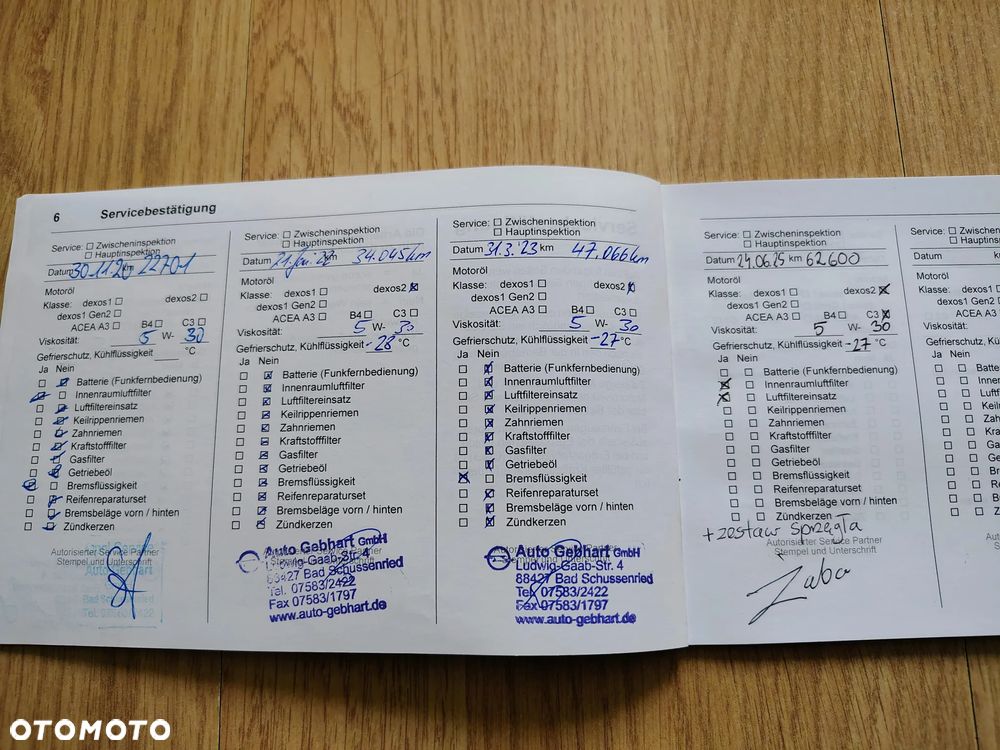 6 Servicebestätigung
Service: Zwischeninspektion
Hauptinspektion
Datum 30.11.20 km 22701
Motoröl
Klasse: dexos1 dexos2
dexos1 Gen2
ACEA A3 B4 C3
Viskosität: 5 W- 30
Gefrierschutz, Kühlflüssigkeit °C
Ja Nein
Batterie (Funkfernbedienung)
Innenraumluftfilter
Luftfiltereinsatz
Keilrippenriemen
Zahnriemen
Kraftstofffilter
Gasfilter
Getriebeöl
Bremsflüssigkeit
Reifenreparaturset
Bremsbeläge vorn / hinten
Zündkerzen
Autorisierter Service Partner
Stempel und Unterschrift
Service: Zwischeninspektion
Hauptinspektion
Datum 21. Jan. 22 km 34.045km
Motoröl
Klasse: dexos1 dexos2
dexos1 Gen2
ACEA A3 B4 C3
Viskosität: 5 W- 30
Gefrierschutz, Kühlflüssigkeit -28 °C
Ja Nein
Batterie (Funkfernbedienung)
Innenraumluftfilter
Luftfiltereinsatz
Keilrippenriemen
Zahnriemen
Kraftstofffilter
Gasfilter
Getriebeöl
Bremsflüssigkeit
Reifenreparaturset
Bremsbeläge vorn / hinten
Zündkerzen
Auto Gebhart GmbH
Ludwig-Gaab-Str. 4
88427 Bad Schussenried
Tel. 07583/2422
Fax 07583/1797
www.auto-gebhart.de
Service: Zwischeninspektion
Hauptinspektion
Datum 31.3.'23 km 47.066km
Motoröl
Klasse: dexos1 dexos2
dexos1 Gen2
ACEA A3 B4 C3
Viskosität: 5 W- 30
Gefrierschutz, Kühlflüssigkeit -27 °C
Ja Nein
Batterie (Funkfernbedienung)
Innenraumluftfilter
Luftfiltereinsatz
Keilrippenriemen
Zahnriemen
Kraftstofffilter
Gasfilter
Getriebeöl
Bremsflüssigkeit
Reifenreparaturset
Bremsbeläge vorn / hinten
Zündkerzen
Auto Gebhart GmbH
Ludwig-Gaab-Str. 4
88427 Bad Schussenried
Tel. 07583/2422
Fax 07583/1797
www.auto-gebhart.de
Service: Zwischeninspektion
Hauptinspektion
Datum 24.06.25 km 62600
Motoröl
Klasse: dexos1 dexos2
dexos1 Gen2
ACEA A3 B4 C3
Viskosität: 5 W- 30
Gefrierschutz, Kühlflüssigkeit -27 °C
Ja Nein
Batterie (Funkfernbedienung)
Innenraumluftfilter
Luftfiltereinsatz
Keilrippenriemen
Zahnriemen
Kraftstofffilter
Gasfilter
Getriebeöl
Bremsflüssigkeit
Reifenreparaturset
Bremsbeläge vorn / hinten
Zündkerzen
+ zestaw sprzęgła
Autorisierter Service Partner
Stempel und Unterschrift
Żaba
Service:
Datum
Motoröl
Klasse:
Viskosität:
Gefrierschutz,
Ja Nein
OTOMOTO